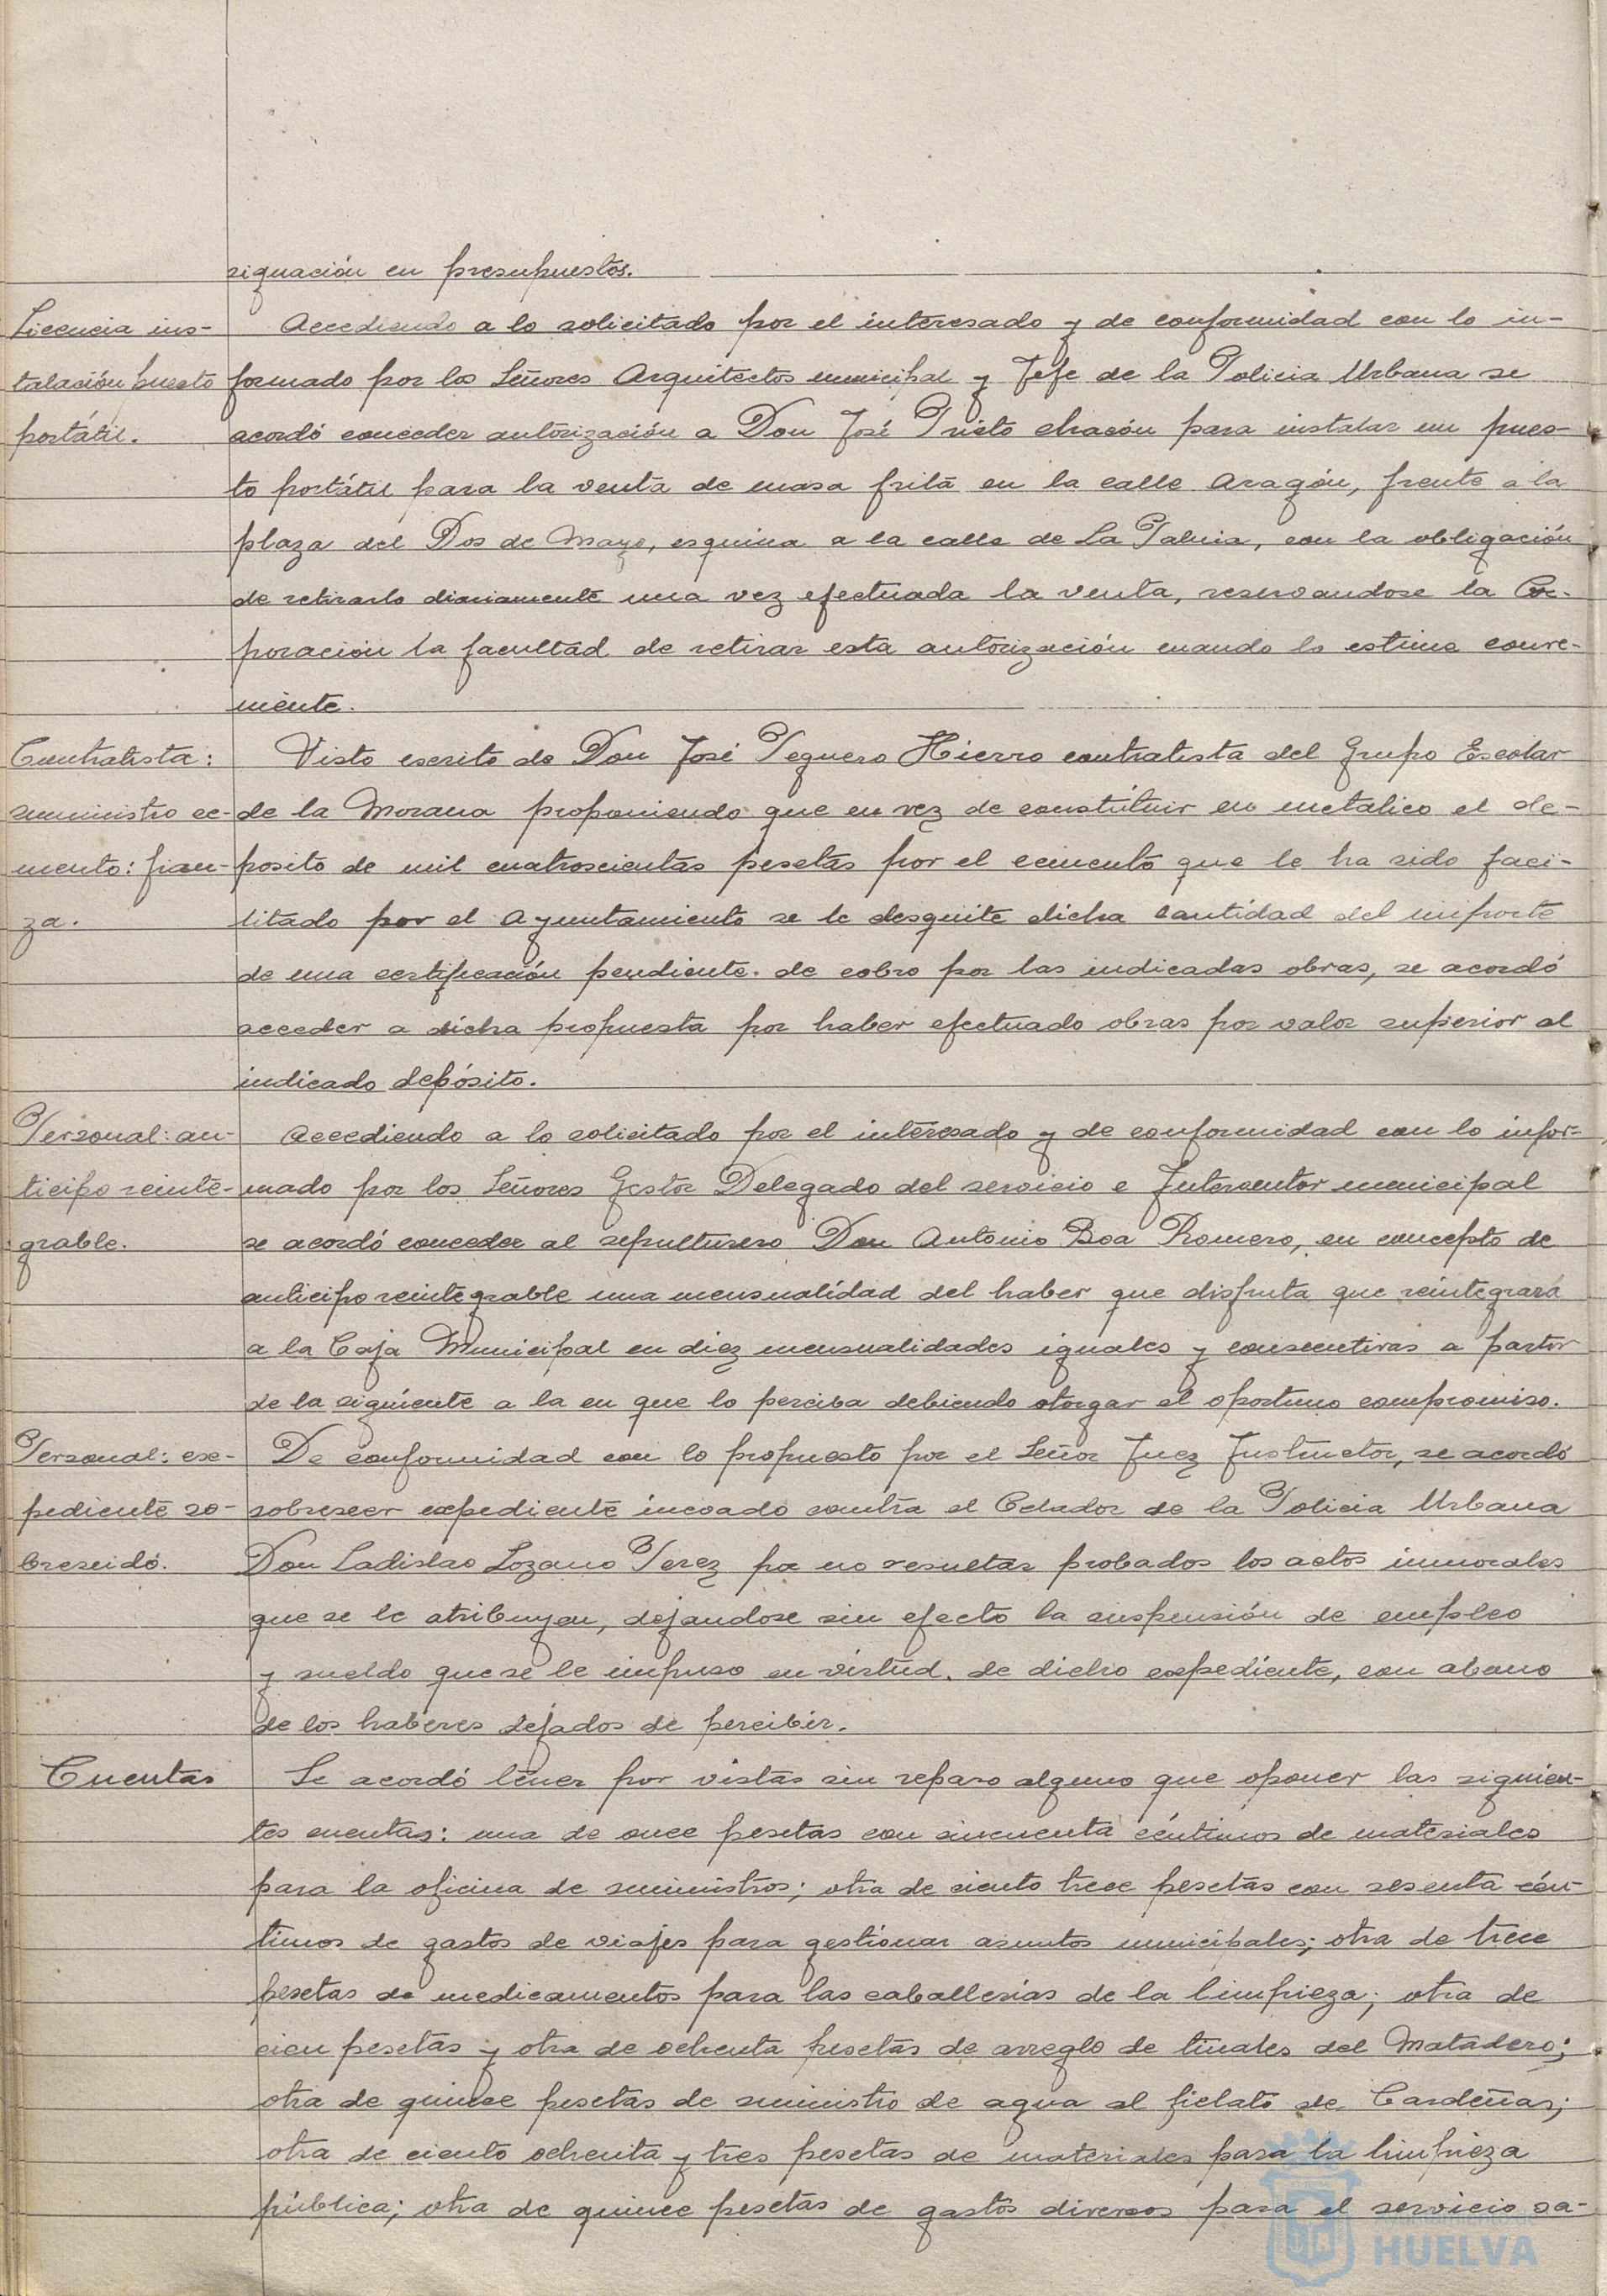 signación en presupuestos.
Licencia ins-
talación puesto
portátil.
Accediendo a lo solicitado por el interesado y de conformidad con lo in-
formado por los Señores Arquitectos municipal y Jefe de la Policia Urbana se
acordó conceder autorización a Don José Prieto chacón para instalar un pues-
to portátil para la venta de masa frita en la calle Aragón, frente a la
plaza del Dos de Mayo, esquina a la calle de La Palma, con la obligación
de retirarlo diariamente una vez efectuada la venta, reservandose la Cor-
poración la facultad de retirar esta autorización cuando lo estime conve-
niente.
Contratista:
suministro ce-
mento: fian-
za.
Visto escrito de Don José Peguero Hierro contratista del Grupo Escolar
de la Morana proponiendo que en vez de constítuir en metalico el de-
posito de mil cuatroscientas pesetas por el cemento que le ha sido faci-
litado por el Ayuntamiento se le desquite dicha cantidad del importe
de una certificación pendiente de cobro por las indicadas obras, se acordó
acceder a dicha propuesta por haber efectuado obras por valor superior al
indicado depósito.
Personal: an-
ticipo reinte-
grable.
Accediendo a lo solicitado por el interesado y de conformidad con lo infor-
mado por los Señores Gestor Delegado del servicio e Interventor municipal
se acordó conceder al sepulturero Don Antonio Boa Romero, en concepto de
anticipo reintegrable una mensualidad del haber que disfruta que reintegrará
a la Caja Municipal en diez mensualidades iguales y consecutivas a partir
de la siguiente a la en que lo perciba debiendo otorgar el oportuno compromiso.
Personal: ex-
pediente so-
breseidó.
De conformidad con lo propuesto por el Señor Juez Instructor, se acordó
sobreseer expediente incoado contra el Celador de la Policia Urbana
Don Ladislao Lozano Perez por no resultar probados los actos inmorales
que se le atribuyen, dejandose sin efecto la suspensión de empleo
y sueldo que se le impuso en virtud de dicho expediente, con abono
de los haberes dejados de percibir.
Cuentas
Se acordó tener por vistas sin reparo alguno que oponer las siguien-
tes cuentas: una de once pesetas con cincuenta céntimos de materiales
para la oficina de suministros; otra de ciento trece pesetas con sesenta cén-
timos de gastos de viajes para gestionar asuntos municipales; otra de trece
pesetas de medicamentos para las caballerias de la limpieza; otra de
cien pesetas y otra de ochenta pesetas de arreglo de tinales del Matadero;
otra de quince pesetas de suministro de agua al fielato de Cardeñas;
otra de ciento ochenta y tres pesetas de materiales para la limpieza
pública; otra de quince pesetas de gastos diversos para el servicio sa-
HUELVA